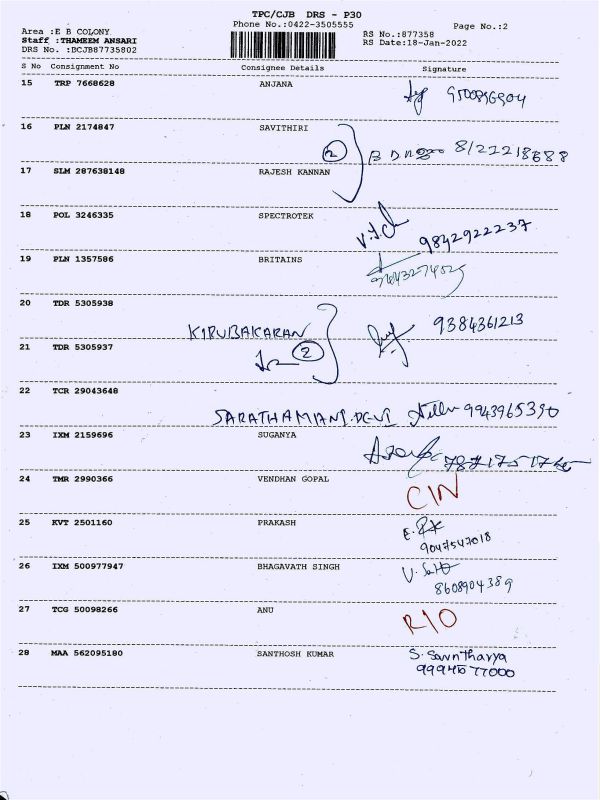 TPC/CJB DRS - P30
Phone No.:0422-3505555
Page No.:2
Area :E B COLONY
RS No.:877358
Staff :THAMEEM ANSARI
RS Date:18-Jan-2022
DRS No. :BCJB87735802
S No Consignment No Consignee Details Signature
15 TRP 7668628 ANJANA
16 PLN 2174847 SAVITHIRI
2
8122218688
17 SLM 287638148 RAJESH KANNAN
18 POL 3246335 SPECTROTEK
9842922237
19 PLN 1357586 BRITAINS
20 TDR 5305938
KIRUBAKARAN 9384361213
2
21 TDR 5305937
22 TCR 29043648
SARATHAMANI.DEVI 9943965390
23 IXM 2159696 SUGANYA
24 TMR 2990366 VENDHAN GOPAL
C/N
25 KVT 2501160 PRAKASH
9047547018
26 IXM 500977947 BHAGAVATH SINGH
8608904389
27 TCG 50098266 ANU
R/O
28 MAA 562095180 SANTHOSH KUMAR
S. Sowntharya